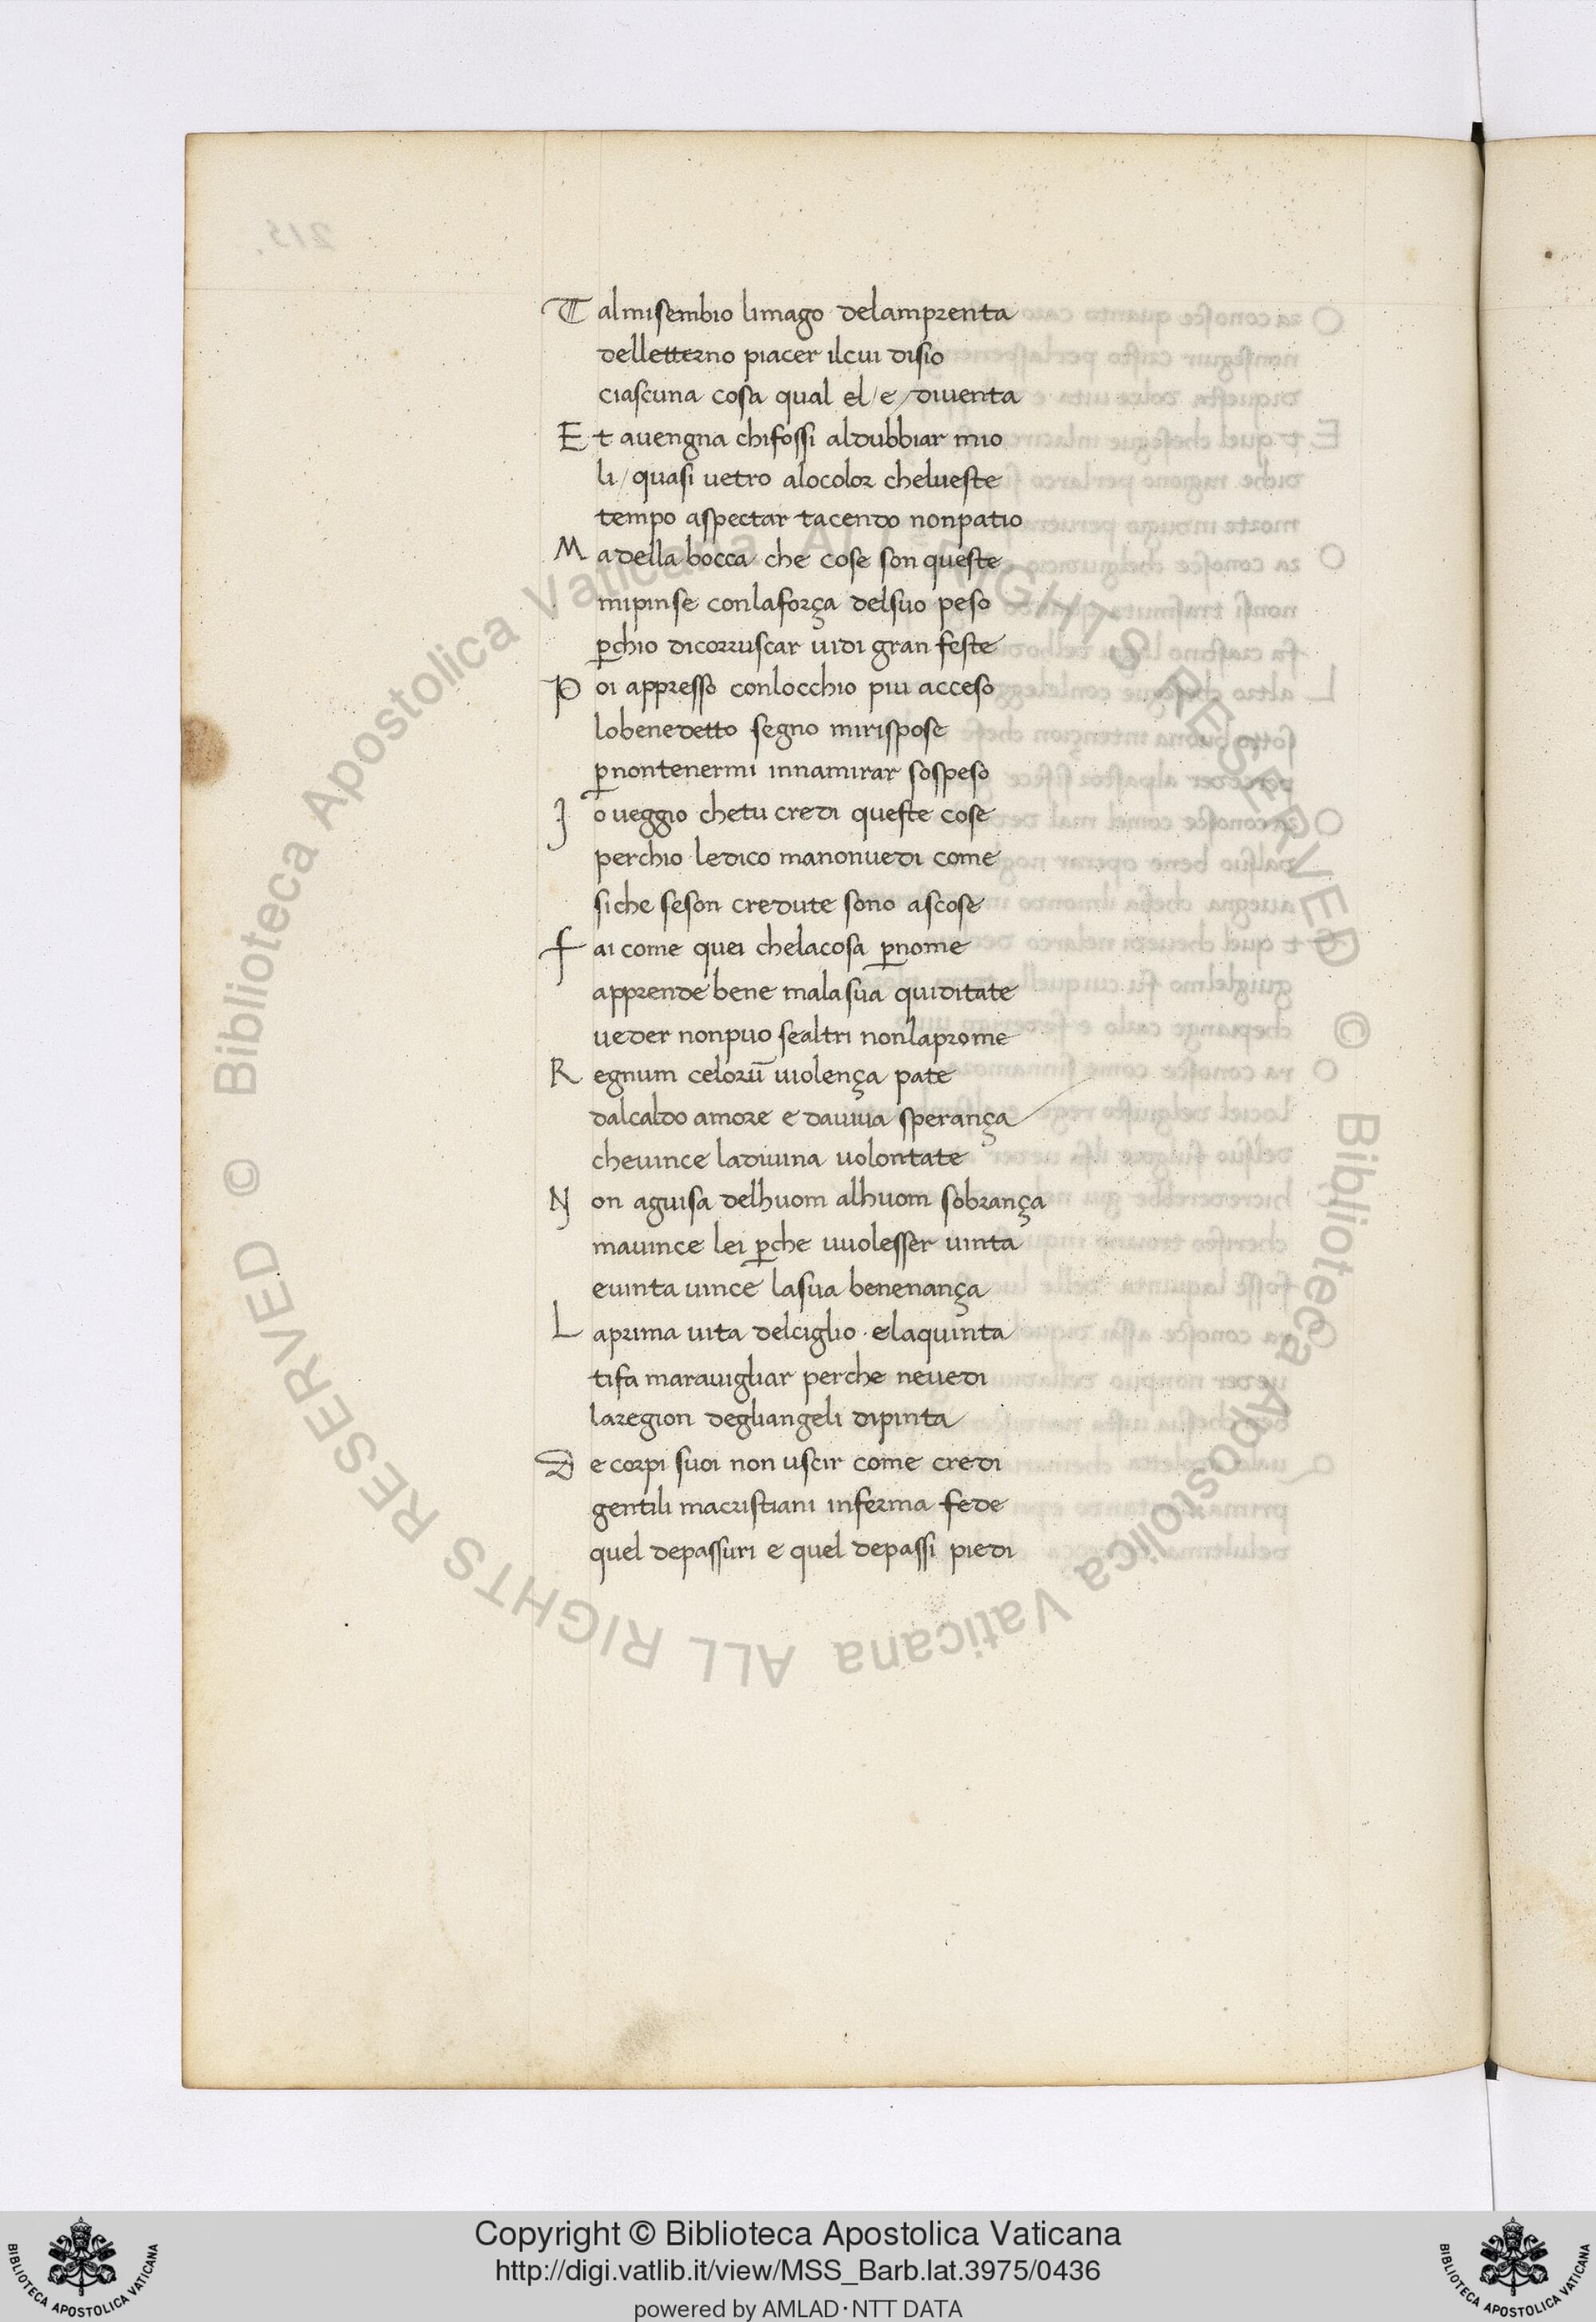 T almisembio limago delamprenta
delletterno piacer ilcui disio
ciascuna cosa qual el/e/diventa
E t avengna chifossi aldubbiar mio
li/quasi vetro alocolor chelveste
tempo aspectar tacendo nonpatio
M adella bocca che cose son queste
mipinse conlaforça delsuo peso
p̱chio dicorruscar vidi gran feste
P oi appresso conlocchio piu acceso
lobenedetto segno mirispose
p̱nontenermi innamirar sospeso
J o veggio chetu credi queste cose
perchio ledico manonvedi come
siche seson credute sono ascose
f ai come quei chelacosa p̱nome
apprende bene malasua quiditate
veder nonpuo sealtri nonlaprome
R egnum celorū violença pate
dalcaldo amore e daviva sperança
chevince ladivina volontate
N on aguisa delhuom alhuom sobrança
mavince lei p̱che vuolesser vinta
evinta vince lasua benenança
L aprima vita delciglio · elaquinta
tifa maravigliar perche nevedi
laregion degliangeli dipinta
D e corpi suoi non uscir come credi
gentili macristiani inferma fede
quel depassuri e quel depassi piedi
© Biblioteca Apostolica Vaticana ALL RIGHTS RESERVED © Biblioteca Apostolica Vaticana ALL RIGHTS RESERVED
Copyright © Biblioteca Apostolica Vaticana
http://digi.vatlib.it/view/MSS_Barb.lat.3975/0436
powered by AMLAD·NTT DATA
BIBLIOTECA APOSTOLICA VATICANA
BIBLIOTECA APOSTOLICA VATICANA